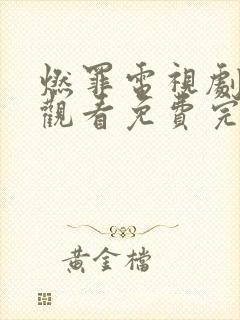 燃罪電視劇
觀看免費完
黃金檔